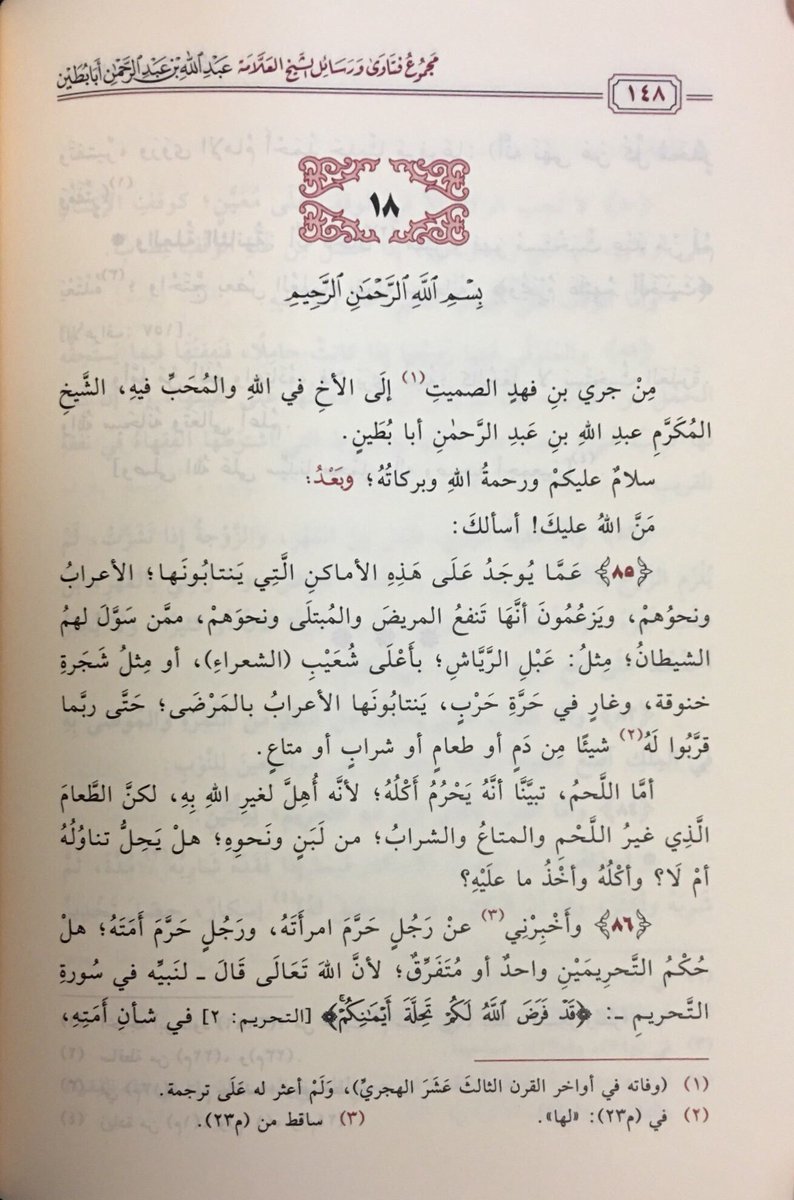 مَجْمُوعُ فَتَاوَى وَرَسَائِل الشَّيْخِ العَلَّامَة عَبْدِ اللهِ بْنِ عَبْدِ الرَّحْمٰنِ أَبَا بُطَيْن
١٤٨
١٨
بِسْمِ اللَّهِ الرَّحْمَـٰنِ الرَّحِيمِ
مِنْ جري بنِ فهدٍ الصميتِ(١) إلَى الأخِ في اللهِ والمُحَبِّ فيهِ، الشَّيخِ
المُكَرَّمِ عبدِ اللهِ بنِ عَبدِ الرَّحمٰنِ أبا بُطَينٍ.
سلامٌ عليكمْ ورحمةُ اللهِ وبركاتُهُ؛ وبَعْدُ:
مَنَّ اللهُ عليكَ! أسألكَ:
﴿٨٥﴾ عَمَّا يُوجَدُ عَلَى هَذِهِ الأماكنِ الَّتِي يَنتابُونَها؛ الأعرابُ
ونحوُهمْ، ويَزعُمُونَ أنَّهَا تَنفعُ المريضَ والمُبتلَى ونحوَهمْ، ممَّن سَوَّلَ لهمُ
الشيطانُ؛ مِثلُ: عَبْلِ الرَّيَّاشِ؛ بأَعْلَى شُعَيْبِ (الشعراءِ)، أو مِثلُ شَجَرةِ
خنوقة، وغارٍ في حَرَّةِ حَرْبٍ، يَنتابُونَها الأعرابُ بالمَرْضَى؛ حَتَّى ربَّما
قرَّبُوا لَهُ(٢) شيئًا مِن دَمٍ أو طعامٍ أو شرابٍ أو متاعٍ.
أمَّا اللَّحمُ، تبيَّنَّا أنَّهُ يَحْرُمُ أكْلُهُ؛ لأنَّه أُهِلَّ لغيرِ اللهِ بِهِ، لكنَّ الطَّعامَ
الَّذِي غيرُ اللَّحْمِ والمتاعُ والشرابُ؛ من لَبَنٍ ونَحوِهِ؛ هلْ يَحِلُّ تناوُلُهُ
أمْ لَا؟ وأكْلُهُ وأخْذُ ما علَيْهِ؟
﴿٨٦﴾ وأَخْبِرْنِي(٣) عنْ رَجُلٍ حَرَّمَ امرأتَهُ، ورَجُلٍ حَرَّمَ أمَتَهُ؛ هلْ
حُكْمُ التَّحرِيمَيْنِ واحدٌ أو مُتَفَرِّقٌ؛ لأنَّ اللهَ تَعَالَى قَالَ ـ لنَبيِّه في سُورةِ
التَّحريمِ ـ: ﴿قَدْ فَرَضَ اللَّهُ لَكُمْ تَحِلَّةَ أَيْمَانِكُمْ﴾ [التحريم: ٢] في شأنِ أمَتِهِ،
(١) (وفاته في أواخر القرن الثالثَ عَشَرَ الهجريِّ)، وَلَمْ أعثر له عَلَى ترجمة.
(٢) في (م٢٣): «لها».
(٣) ساقط من (م٢٣).